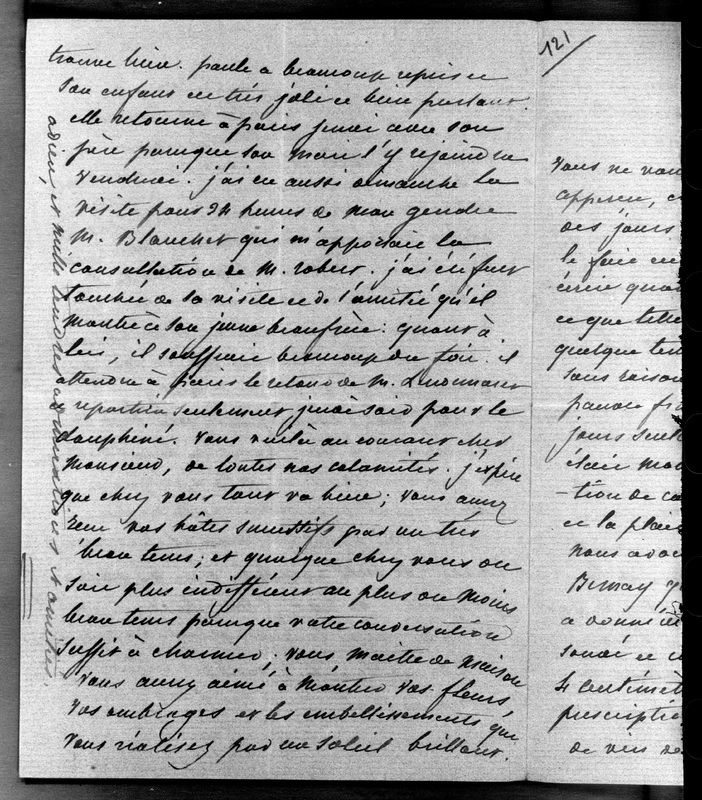 trouve bien. paule a beaucoup repris et
son enfant est très joli et bien portant.
elle retourne à paris jeudi avec son
père puisque son mari l'y rejoindra
vendredi. j'ai eu aussi dimanche la
visite pour 24 heures de mon gendre
M. Blanchet qui m'apportait la
consultation de M. robert. j'ai été fort
touchée de sa visite et de l'amitié qu'il
montre à son jeune beaufrère. quant à
lui, il souffrait beaucoup du foie. il
attendra à paris le retour de M.
repartira seulement jeudi soir pour le
dauphiné. Vous voilà au courant cher
Monsieur, de toutes nos calamités. j'espère
que chez vous tout va bien; vous aurez
reçu vos hôtes successifs par un très
beau tems; et quoique chez vous on
soit plus indifférent au plus ou moins
beau tems puisque votre conversation
suffit à charmer; vous, maître de maison
vous aurez aimé à montrer vos fleurs,
vos ombrages et les embellissements que
vous réalisez par un soleil brillant.
adieu, et mille tendres et amitiés.
121
Vous ne vou
des jours
le faire en
ce que telle
quelque ten
sans raison
jours seul
-tion de ca
et la plai
nous avon
Bernay q
a donné
4 centimèt
prescriptio
de vin de